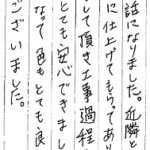 話になりました。近隣と
に仕上げてもらってあり
して頂き工事過程
とても安心できまし
なって色もとても良
ございました。